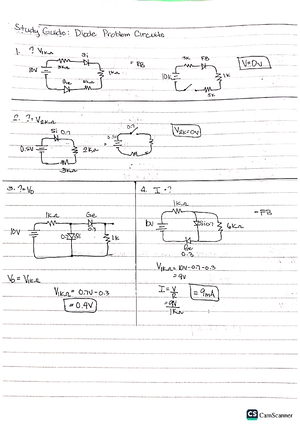 Study Guide: Diode Problem Circuits
1. ? V1KΩ
Si
= FB
10V
1KΩ
Ge
FB
10K
1K
5K
V=0V
2. ?= V2KΩ
Si 0.7
0.5V
2KΩ
3KΩ
0.7
0.5V
V2K=0V
3. ?=V0
1KΩ
Ge
0.3
10V
1K
V0 = V1KΩ
V1KΩ = 0.7V-0.3
= 0.4V
4. I =?
1KΩ
= FB
10V
6KΩ
Ge
0.3
V1KΩ = 10V-0.7-0.3
= 9V
I = V/R
= 9V/1KΩ
= 9mA
CS CamScanner